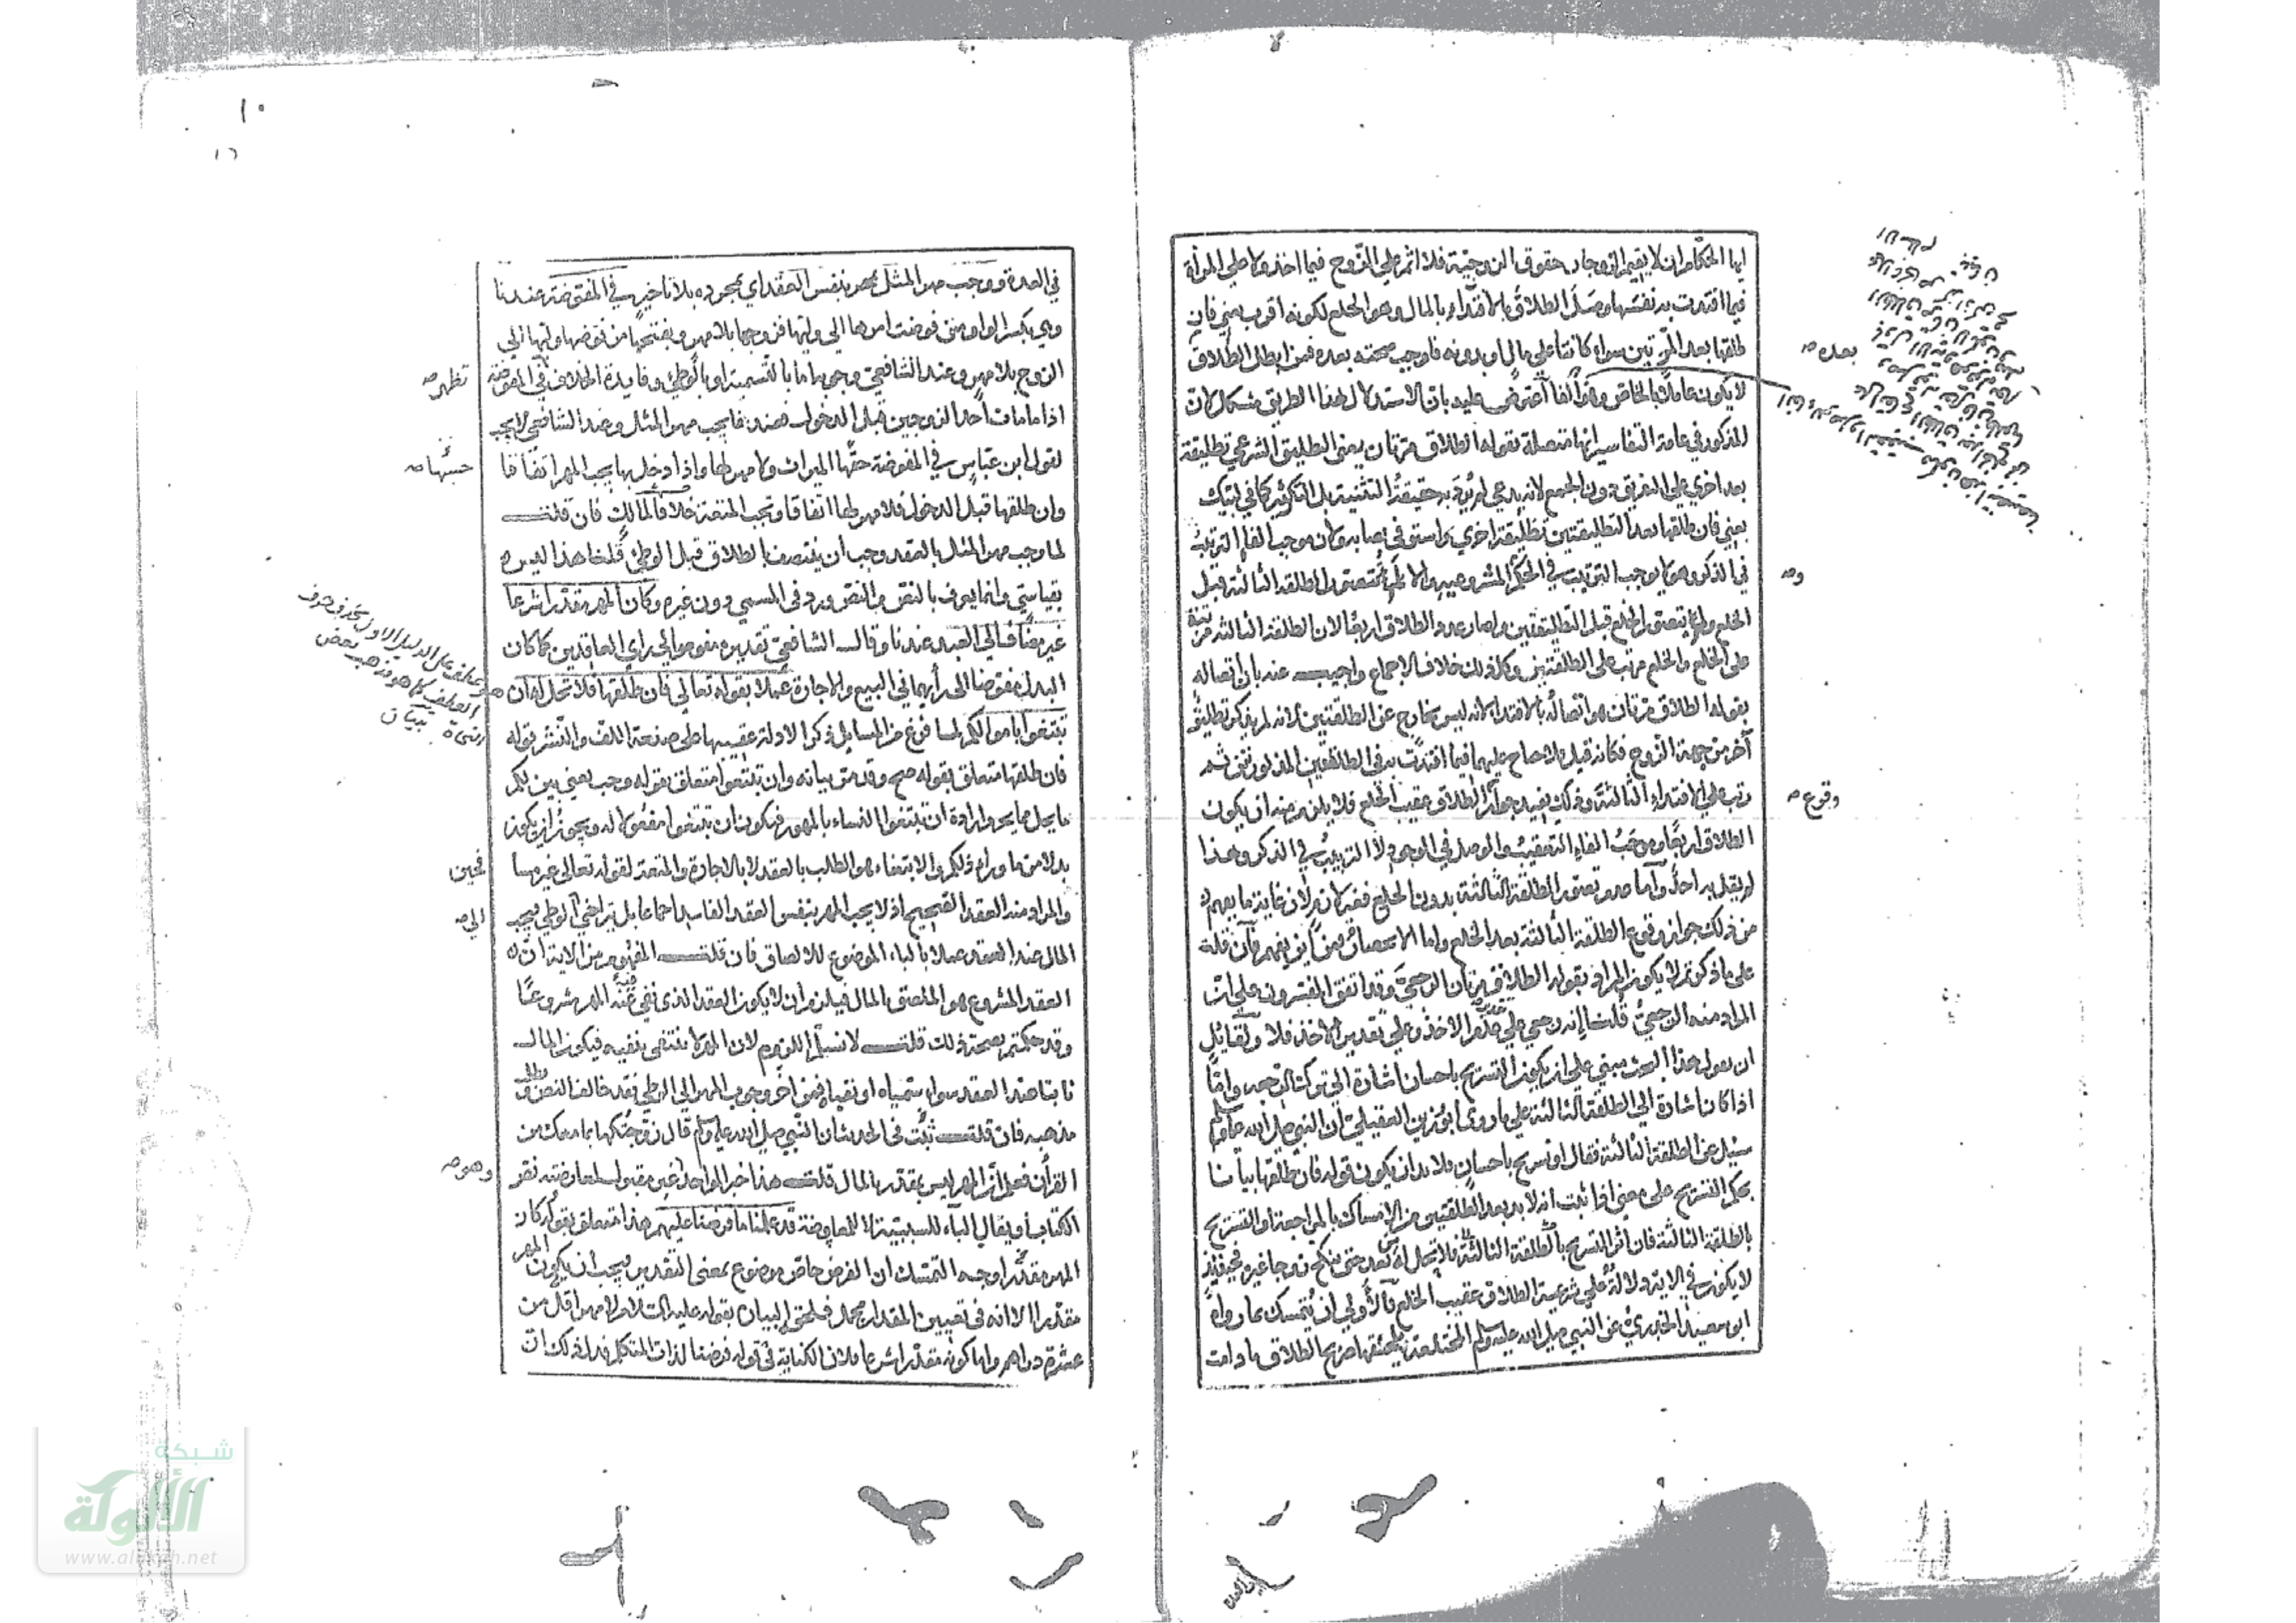 ايها الحكام ان لا يقيم الزوجان حقوق الزوجية فلا اثم على الزوج فيما اخذ ولا على المرأة
فيما افتدت به نفسها وصل الطلاق بالافتداء بالمال وهو الخلع لكونه اقرب يعني فان
طلقها بعد المرتين سواء كانتا على مال او بدونه فاوجب صحته بعده فمن ابطل الطلاق
لا يكون عاملا بالخاص وهو الفا اعترض عليه بان الاستدلال بهذا الطريق مشكل لان
المذكور في عامة التفاسير انها متصلة بقوله الطلاق مرتان يعني التطليق الشرعي تطليقة
بعد اخرى على التفريق دون الجمع لانه يدعى لم يرد به حقيقة التثنية بل التكرير كما في لبيك
يعني فان طلقها بعد التطليقتين تطليقة اخرى او استوفى نصابه ولان موجب الفاء الترتيب
في الذكر وهو لا يوجب الترتيب في الحكم المشروعية والا لم تتصور الطلقة الثالثة قبل
الخلع ولم يتصور الخلع قبل التطليقتين ولصار عدد الطلاق اربعا لان الطلقة الثالثة مرتبة
على الخلع والخلع مرتب على الطلقتين وكل ذلك خلاف الاجماع واجيب عنه بان اتصاله
بقوله الطلاق مرتان هو اتصاله بالافتداء لانه ليس بخارج عن الطلقتين لانه لم يذكر تطليق
آخر من جهة الزوج فكانه قيل فلا جناح عليهما فيما افتدت به في الطلقتين المذكورتين ثم
رتب على الافتداء الثالثة وذلك يفيد جواز الطلاق عقيب الخلع فلا يلزم منه ان يكون
الطلاق اربعا وموجب الفاء التعقيب والوصل في الوجود لا الترتيب في الذكر وهذا
لم يقل به احد واما عدم تصور الطلقة الثالثة بدون الخلع فغير لازم لان غاية ما يفهم
من ذلك جواز وقوع الطلقة الثالثة بعد الخلع واما الانحصار فمن اين يفهم فان قلت
على ما ذكرتم لا يكون المراد بقوله الطلاق مرتان الرجعي وقد اتفق المفسرون على ان
المراد منه الرجعي قلنا انه رجعي على تقدير عدم الاخذ وعلى تقدير الاخذ فلا ولقائل
ان يقول هذا البحث مبني على ان يكون التسريح باحسان اشارة الى ترك الرجعة واما
اذا كان اشارة الى الطلقة الثالثة على ما روى ابو رزين العقيلي ان النبي صلى الله عليه وسلم
سئل عن الطلقة الثالثة فقال او تسريح باحسان فلا بد ان يكون قوله فان طلقها بيانا
بحكم التسريح على معنى اذا ثبت انه لا بد بعد الطلقتين من الامساك بالمراجعة او التسريح
بالطلقة الثالثة فان اثر التسريح بالطلقة الثالثة فلا تحل له من بعد حتى تنكح زوجا غيره فحينئذ
لا يكون في الاية دلالة على شرعية الطلاق عقيب الخلع فالاولى ان يتمسك بما رواه
ابو سعيد الخدري عن النبي صلى الله عليه وسلم المختلعة يلحقها صريح الطلاق ما دامت
بعده صح
وصح
وقوع صح
في العدة ووجب مهر المثل بنفس العقد اي بمجرده بلا تأخير في المفوضة عندنا
وهي بكسر الواو من فوضت امرها الى وليها فزوجها بلا مهر وبفتحها من فوضها وليها الى
الزوج بلا مهر وعند الشافعي وجوبها اما بالتسمية او بالوطئ وفايدة الخلاف في المفوضة
اذا ما مات احد الزوجين قبل الدخول فعندنا يجب مهر المثل وعند الشافعي لا يجب
لقول ابن عباس في المفوضة حقها الميراث ولا مهر لها واذا دخل بها يجب المهر اتفاقا
وان طلقها قبل الدخول فلا مهر لها اتفاقا وتجب المتعة خلافا لمالك فان قلت
لما وجب مهر المثل بالعقد وجب ان ينتصف بالطلاق قبل الوطئ قلنا هذا ليس
بقياسي وانما يعرف بالنص والنص ورد في المسمى دون غيره وكان المهر مقدرا شرعا
غير مضاف الى العبد عندنا وقال الشافعي تقديره مفوض الى راي العاقدين كما كان
البدل مفوضا الى رأيهما في البيع والاجارة عملا بقوله تعالى فان طلقها فلا تحل له ان
تبتغوا باموالكم لما فرغ من المسايل ذكر الادلة عقيبها على صنعة اللف والنشر فقوله
فان طلقها متعلق بقوله صح وقد مر بيانه وان تبتغوا متعلق بقوله وجب يعني بين لكم
ما يحل مما يحرم ارادة ان تبتغوا النساء بالمهور فيكون ان تبتغوا مفعولا له ويجوز ان يكون
بدلا من ما وراء ذلكم والابتغاء هو الطلب بالعقد لا بالاجارة والمتعة لقوله تعالى غير مسا
والمراد منه العقد الصحيح اذ لا يجب المهر بنفس العقد الفاسد اجماعا بل يتراخى الى الوطئ فيجب
المال عند العقد عملا بالباء الموضوع للالصاق فان قلت المفهوم من الاية ان
العقد المشروع هو الملصق بالمال فيلزم ان لا يكون العقد الذي نفي عنه المهر مشروعا
وقد حكمتم بصحة ذلك قلت لا نسلم اللزوم لان المهر لا ينتفي بنفيه فيكون المال
ثابتا عند العقد سواء سمياه او نفياه فمن اخر وجوب المهر الى الوطئ فقد خالف النص
مذهبه فان قلت ثبت في الحديث ان النبي صلى الله عليه وسلم قال زوجتكها بما معك من
القرأن فعلم ان المهر ليس بمقدر بالمال قلت هذا خبر الواحد غير مقبول لمعارضته نص
الكتاب او يقال الباء للسببية لا للمعاوضة قد علمنا ما فرضنا عليهم هذا متعلق بقوله كان
المهر مقدرا وجه التمسك ان الفرض خاص موضوع بمعنى التقدير فيجب ان يكون المهر
مقدرا الا انه في تعيين المقدار مجمل فلحق البيان بقوله عليه السلام لا مهر اقل من
عشرة دراهم واما كونه مقدرا شرعا فلان الكناية في قوله فرضنا لذات المتكلم فدل ذلك ان
تظهر صح
فحين
الى صح
وهو صح
شبكة
الألوكة
www.alukah.net